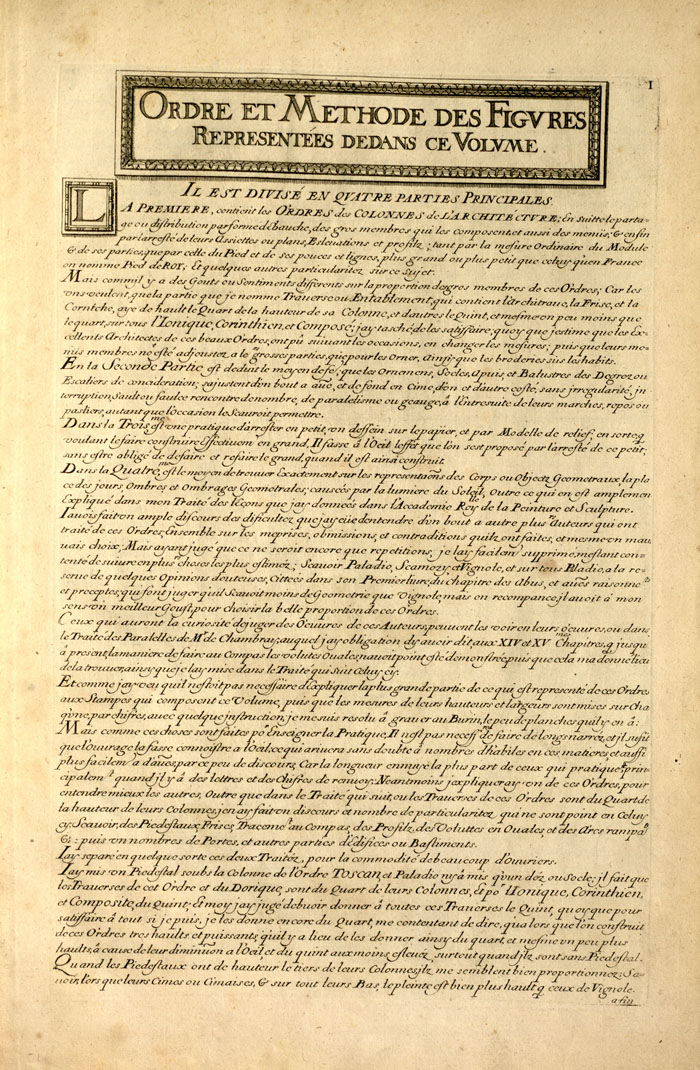 1
ORDRE ET METHODE DES FIGVRES
REPRESENTÉES DEDANS CE VOLVME.
IL EST DIVISÉ EN QVATRE PARTIES PRINCIPALES
LA PREMIERE, contient les ORDRES des COLONNES de L'ARCHITECTURE; En suitte le parta-
ge ou distribution par forme d'ébauche, des gros membres qui les composent, et aussi des menus; & enfin
par l'arresté de leurs Assiettes ou plans, Eslevations et profilz; tant par la mesure Ordinaire du Module
& de ses parties, que par celle du Pied et de ses pouces et lignes, plus grand ou plus petit que celuy qu'en France
on nomme Pied de ROY, Et quelques autres particularitez sur ce Sujet.
Mais comm'il y a des Gouts ou Sentiments differents sur la proportion de gros membres de ces Ordres; Car les
vns veulent, que la partie que je nomme Traverse ou Entablement, qui contient l'Architraue, la Frise, et la
Corniche, aye de hault le Quart de la hauteur de sa Colonne, et d'autres le Quint, et mesme vn peu moins que
le quart, sur tous l'Ionique, Corinthien, et Composé; jay tasché de les satisfaire; quoy que j'estime que les Ex-
cellents Architectes de ces beaux Ordres, ont pû suivant les occasions, en changer les mesures; puis que leurs me-
nus membres n'on esté adjoustez, a le grosses parties, que pour les Orner, Ainsy que les broderies sus les habits.
En la Seconde Partie est deduit le moyen de fe; que les Ornemens, Socles, Apuis, et Balustres des Degrez ou
Escaliers de consideration; s'ajustent d'vn bout a autre, et de fond en Cime, d'vn et d'autre costé, sans irregularité, jn
terruption, sault ou faulce rencontre de nombre, de paralelisme ou geauge, à l'entresuite de leurs marches, repos ou
pasliers, autant que l'occasion le Scauroit permettre.
Dans la Trois.me est vne pratique d'arrester en petit, vn dessein sur le papier, et par Modelle de relief; en sorte q
voulant le faire construire Effectiuem en grand, Il fasse à l'Oeil l'effet que l'on s'est proposé par l'arresté de ce petit;
sans estre obligé de defaire et refaire le grand, quand il est ainsi construit.
Dans la Quatre.me est le moyen de treuuer Exactement sur les representations des Corps ou Objectz Geometraux, la pla
ce des jours, Ombres et Ombrages Geometrales, causcés par la lumiere du Soleil, Outre ce qui on est amplemen
Expliqué dans mon Traité des leçons que jay données dans l'Academie Roy.le de la Peinture et Sculpture.
Iauois fait vn ample discours des dificultez que jay eüe d'entendre d'vn bout a autre plus.rs auteurs qui ont
traité de ces Ordres, Ensemble sur les meprises, obmissions, et contraditions qu'ilz ont faites, et mesme vn mau
uais choix; Mais ayant jugé que ce ne seroit encore que repetitions, je lay facilem supprimé, m'estant con-
tenté de suiure en plus choses les plus estimez; Scauoir Paladio, Scamozy et Vignole, et sur tous Pladio, a la re-
serue de quelques Opinions douteuses, Cittées dans son Premier liure, du chapitre des abus, et autres raisonne
et preceptes, qui font juger qu'il Scauoit moins de Geometrie que Vignole, mais en recompance, il auoit à mon
sens vn meilleur Goust, pour choisir la belle proportion de ces Ordres.
Ceux qui auront la curiosité de juger des Oeuures de ces Auteurs, peuuent les voir en leurs oeuures, ou dans
le Traité des Paralelles de M.r de Chambray, auquel jay obligation d'y auoir dit, aux XIV et XV.mes Chapitres, q jusqu
à present, la maniere de faire au Compas les volutes Ouales, n'auoit point esté demonstrée, puis que cela ma donné lieu
de la trouuer, ainsy que je lay mise dans le Traité qui Suit Celuy cy.
Et comme jay veu qu'il n'estoit pas necessaire d'Expliquer la plus grande partie de ce qui est representé de ces Ordres
aux Stampes qui composent ce Volume, puis que les mesures de leurs hauteurs et largeurs sont mises sur Cha
qvne, par chifres, auec quelque instruction, je me suis resolu à grauer au Burin, le peu de planches qu'il y en à:
Mais comme ces choses sont faites po.r Enseigner la Pratique, Il n'est pas necess.re de faire de longs narrez, et il suffit
que l'ouurage la fasse connoistre a l'Oeil, ce qui ariuera sans doute à nombres d'habiles en ces matieres et aussi
plus facilem a d'autres, par ce peu de discours, Car la longueur ennuye la plus part de ceux qui pratique.t prin-
cipalem.t quand il y à des lettres et des Chifres de renuoy; Neantmoins jexpliqueray vn de ces Ordres, pour
entendre mieux les autres, Outre que dans le Traité qui suit, ou les Trauerses de ces Ordres sont du Quart de
la hauteur de leurs Colonnes, j'en ay fait vn discours et nombre de particularitez qui ne sont point en Celuy
cy; Scauoir, des Piedestaux, Frises, Tracem.t au Compas, des Profilz, des Voluttes en Ouales, et des Arcs rampa.ts
&c: puis vn nombres de Portes, et autres parties d'édifices ou Bastiments.
Iay separé en quelque sorte ces deux Traitéz, pour la commodité de beaucoup d'ouuriers.
Iay mis vn Piedestal soubs la Colonne de l'Ordre TOSCAN, et Paladio n'y à mis qu'vn déz ou Socle; jl fait que
les Trauerses de cet Ordre et du Dorique, sont du Quart de leurs Colonnes, Et po.r l'Ionique, Corinthien,
et Composite, du Quint; Et moy jay jugé debuoir donner à toutes ces Trauerses le Quint, quoy que pour
satisfaire à tout si je puis, je les donne encore du Quart, me contentant de dire, qu'alors que l'on construit
de ces Ordres tres haults et puissants, qu'il y a lieu de les donner ainsy du quart, et mesme vn peu plus
haults, à cause de leur diminuon a l'Oeil, et du quint aux moins esleuez, surtout quand jlz sont sans Piedestal.
Quand les Piedestaux ont de hauteur le tiers de leurs Colonnes, jlz me semblent bien proportionnez; Sca-
uoir, lors que leurs Cimes ou Cimaises, & sur tout leurs Bas, le pleinte est bien plus hault q ceux de Vignole.
afin